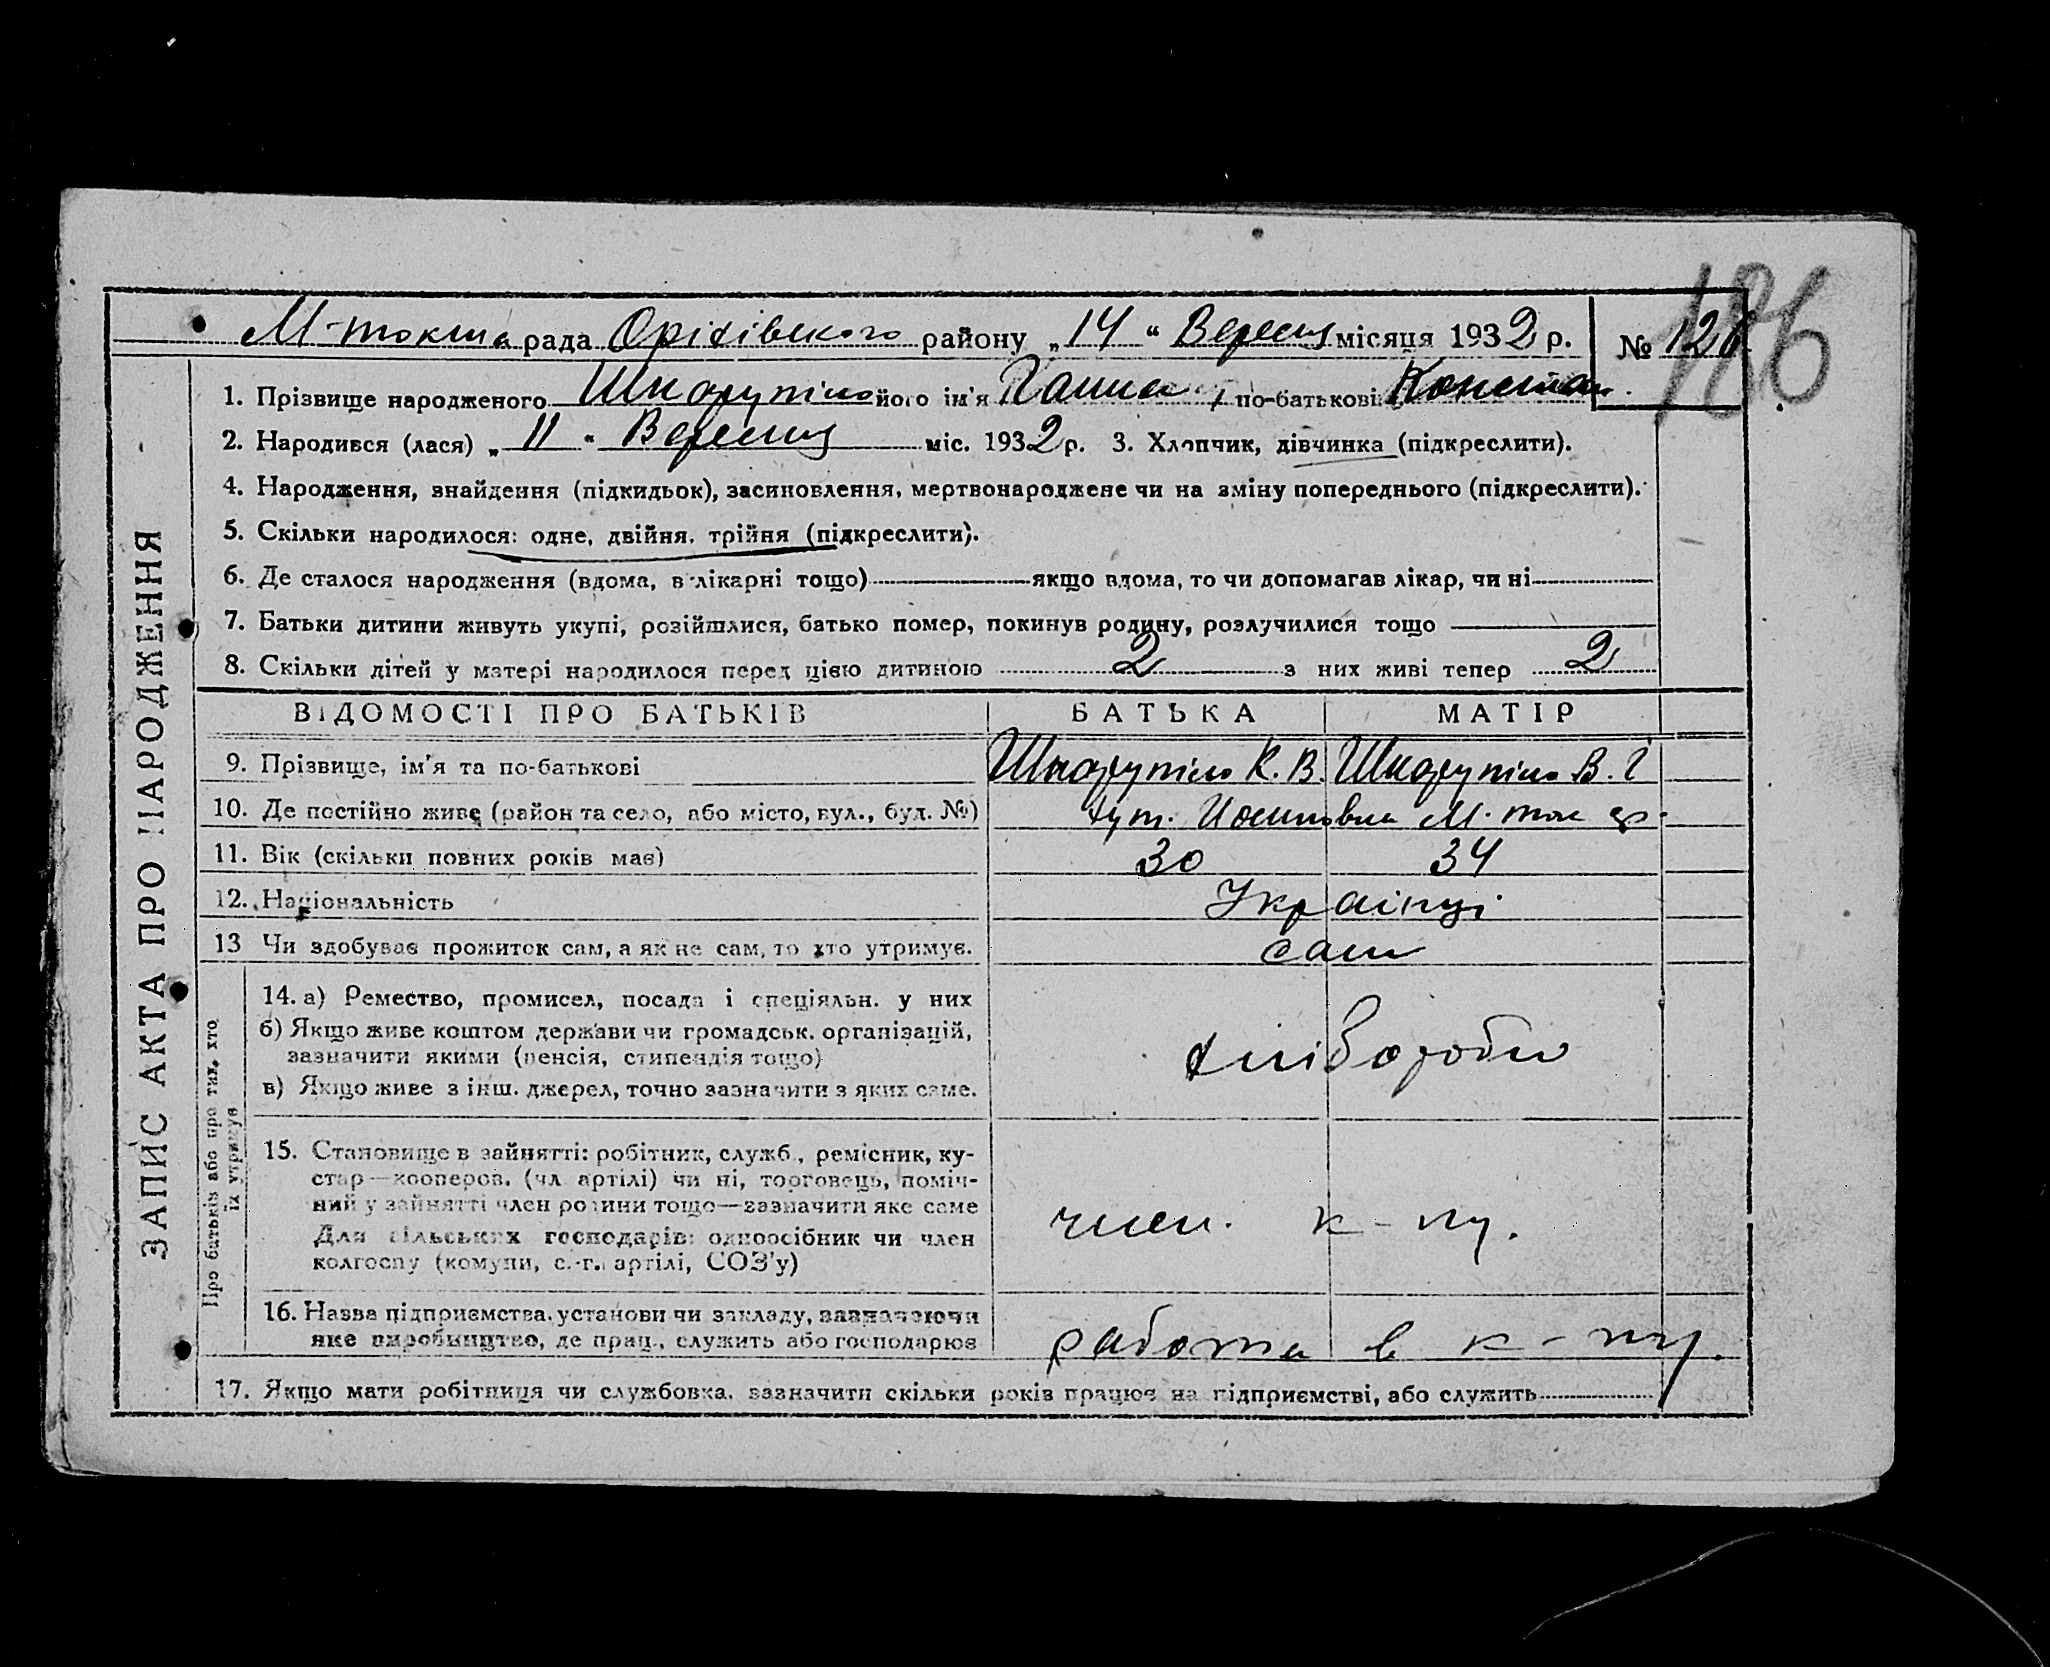 186
М-токма рада Оріхівского району „14" Вересня місяця 1932 р. № 126
1. Прізвище народженого Шкарупіло його ім'я Ганна, по-батькові Констан.
2. Народився (лася) „11" Вересня міс. 1932 р. 3. Хлопчик, дівчинка (підкреслити).
4. Народження, знайдення (підкидьок), засиновлення, мертвонароджене чи на зміну попереднього (підкреслити).
5. Скільки народилося: одне, двійня, трійня (підкреслити).
6. Де сталося народження (вдома, в лікарні тощо) якщо вдома, то чи допомагав лікар, чи ні
7. Батьки дитини живуть укупі, розійшлися, батько помер, покинув родину, розлучилися тощо
8. Скільки дітей у матері народилося перед цією дитиною 2 з них живі тепер 2
ВІДОМОСТІ ПРО БАТЬКІВ БАТЬКА МАТІР
9. Прізвище, ім'я та по-батькові Шкарупіло К. В. Шкарупіло В. Г
10. Де постійно живе (район та село, або місто, вул., буд. №) хут. М. ток
11. Вік (скільки повних років має) 30 34
12. Національність Українці
13 Чи здобуває прожиток сам, а як не сам, то хто утримує. сам
14. а) Ремество, промисел, посада і спеціяльн. у них
б) Якщо живе коштом держави чи громадськ. організацій,
зазначити якими (пенсія, стипендія тощо)
хлібороби
в) Якщо живе з інш. джерел, точно зазначити з яких саме.
15. Становище в зайнятті: робітник, служб., ремісник, ку-
стар—кооперов. (чл артілі) чи ні, торговець, поміч-
ний у зайнятті член родини тощо—зазначити яке саме
член. к-пу.
Для сільських господарів: одноосібник чи член
колгоспу (комуни, с.-г. артілі, СОЗ'у)
16. Назва підприємства, установи чи закладу, зазначаючи
яке виробництво, де прац., служить або господарює работа в к-пу.
17. Якщо мати робітниця чи службовка, зазначити скільки років працює на підприємстві, або служить
ЗАПИС АКТА ПРО НАРОДЖЕННЯ
Про батьків або про тих, хто
їх утримує